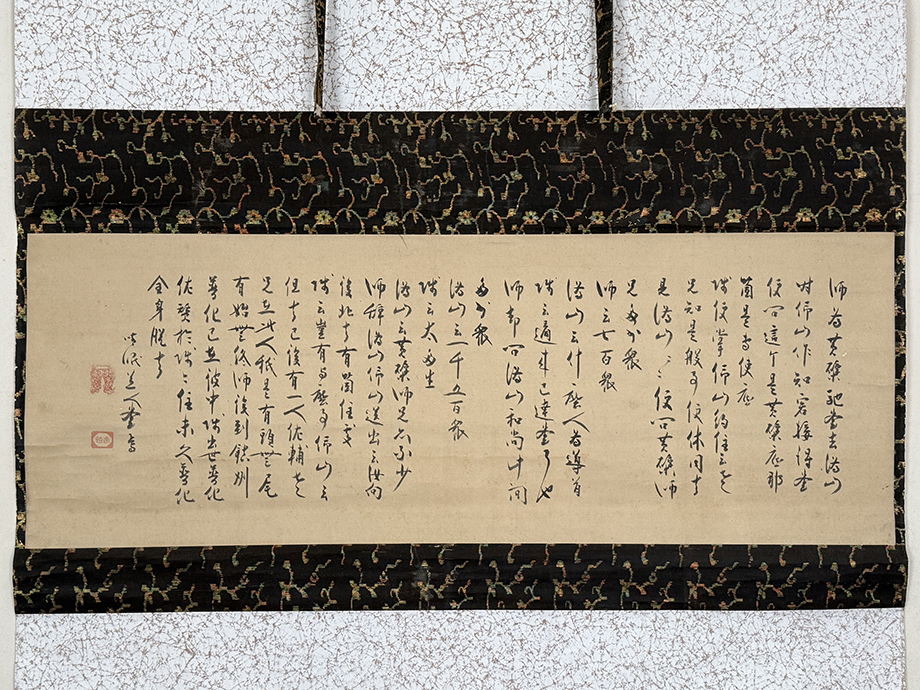 師為黄檗馳書去溈山
時仰山作知客接得書
便問這个是黄檗底那
箇是専使底
師便掌仰山約住云老
兄知是般事便休同去
見溈山〻〻便問黄檗師
兄多少衆
師云七百衆
溈山云什麼人為導首
師云適来已達書了也
師却問溈山和尚此間
多少衆
溈山云一千五百衆
師云太多生
溈山云黄檗師兄亦不少
師辞溈山仰山送出云汝向
後北去有箇住处
師云豈有与麼事仰山云
但去已後有一人佐輔老
兄在此人秖是有頭無尾
有始無終師後到鎮州
普化已在彼中師出世普化
佐賛於師〻住未久普化
全身脱去
道人書